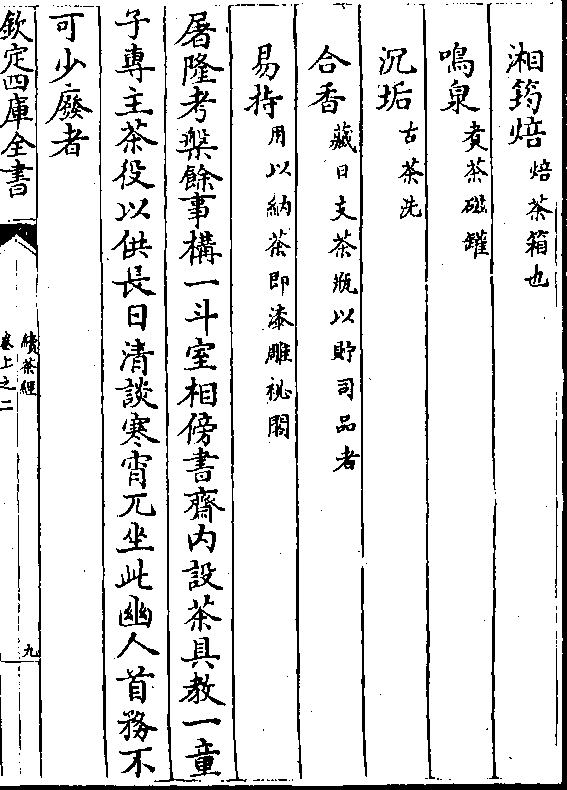 湘筠焙 焙茶箱也
鳴泉 煑茶磁罐
沉垢 古茶洗
合香 藏日支茶瓶以貯司品者
易持 用以納茶即漆雕秘閣
屠隆考槃餘事構一斗室相傍書齋内設茶具教一童
子專主茶役以供長日清談寒宵兀坐此幽人首務不
可少廢者
欽定四庫全書
續茶經
卷上之二
九